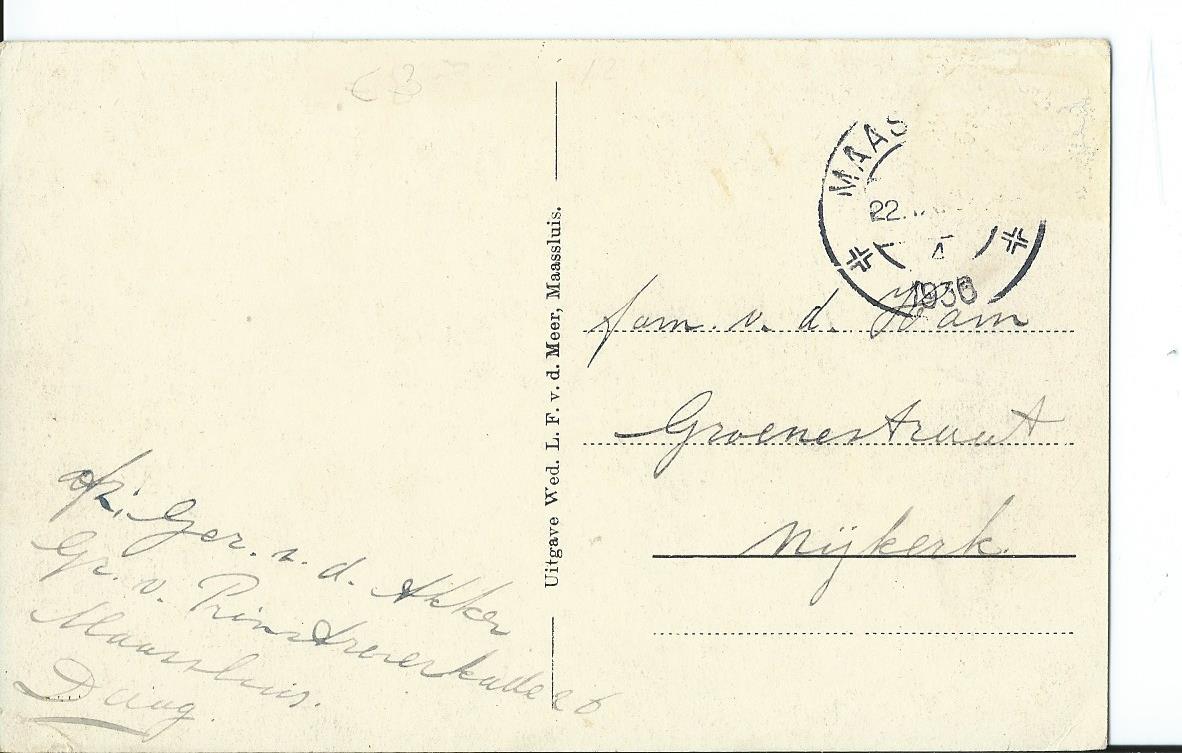 MAAS
22.
4
1936
fam. v. d. Ham
Groenestraat
Nijkerk.
Uitgave Wed. L. F. v. d. Meer, Maassluis.
afz. Ger. v. d. Akker
Gr. v. Prinstrerkade 26
Maassluis.
Daag.